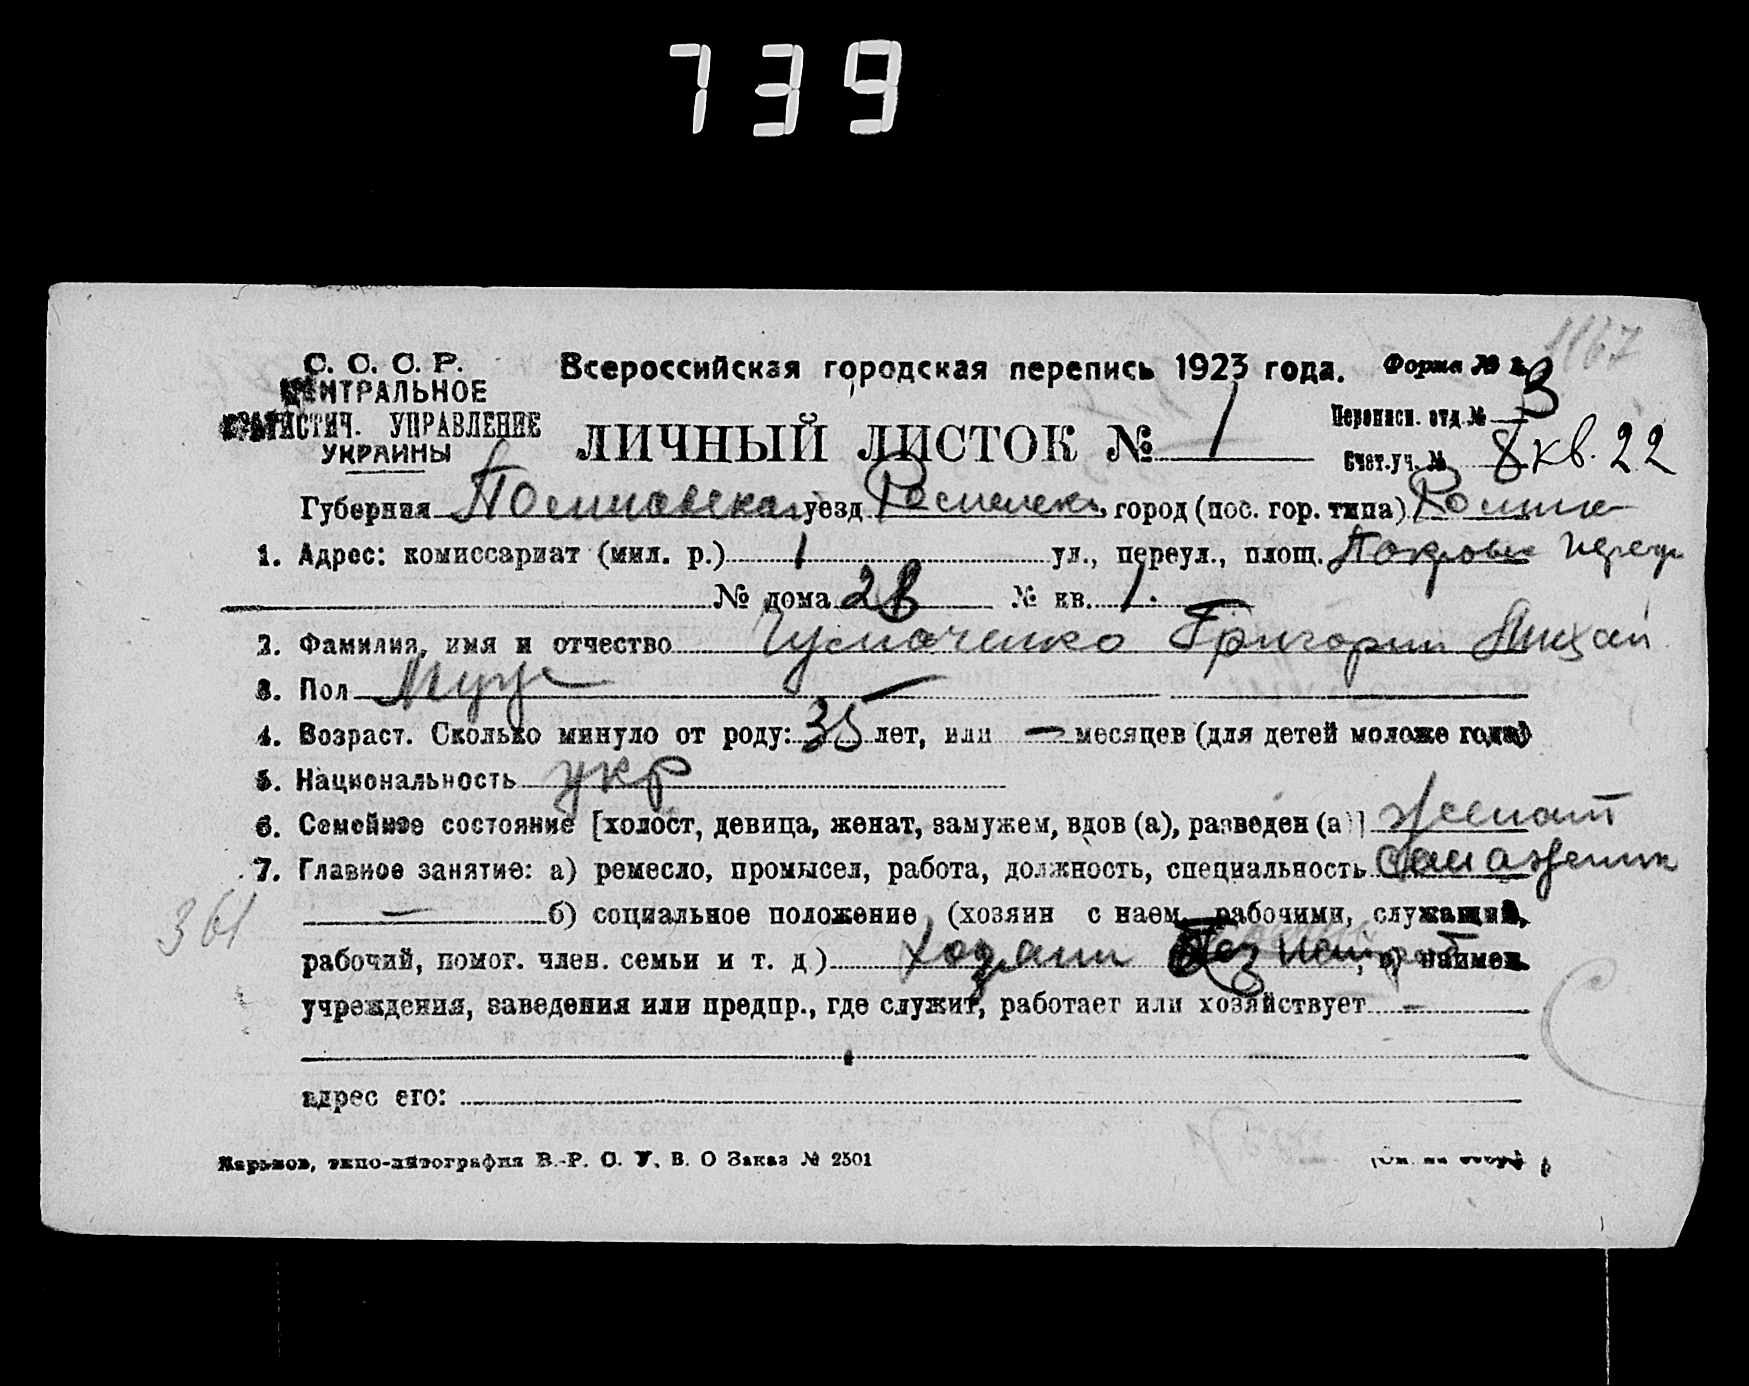 739
1167
С. С. С. Р.
ЦЕНТРАЛЬНОЕ
СТАТИСТИЧ. УПРАВЛЕНИЕ
УКРАИНЫ
Всероссийская городская перепись 1923 года.
Форма № 3
ЛИЧНЫЙ ЛИСТОК № 1
Переписн. отд. №
Счет.уч. № 8 кв. 22
Губерния Полтавская уезд Роменск, город (пос. гор. типа) Ромны
1. Адрес: комиссариат (мил. р.) 1 ул., переул., площ. Покровс переул
№ дома 28 № кв. 1.
2. Фамилия, имя и отчество Григорий Михай
3. Пол Муж —
4. Возраст. Сколько минуло от роду: 35 лет, или — месяцев (для детей моложе года)
5. Национальность укр
6. Семейное состояние [холост, девица, женат, замужем, вдов (а), разведен (а)] женат
7. Главное занятие: а) ремесло, промысел, работа, должность, специальность сапожник
361
— б) социальное положение (хозяин с наем. рабочими, служащий,
рабочий, помог. член. семьи и т. д) хозяин без, в) наимен.
учреждения, заведения или предпр., где служит, работает или хозяйствует —
адрес его:
Харьков, типо-литография В.-Р. С. У. В. О Заказ № 2501